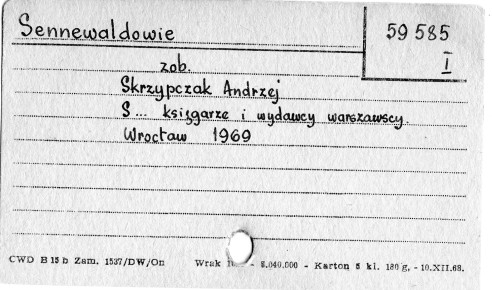 Sennewaldowie
59 585
I
zob.
Skrzypczak Andrzej
S... księgarze i wydawcy warszawscy.
Wrocław 1969
CWD B 15 b Zam. 1537/DW/On Wrak - 8.040.000 - Karton 5 kl. 180 g, - 10.XII.68.